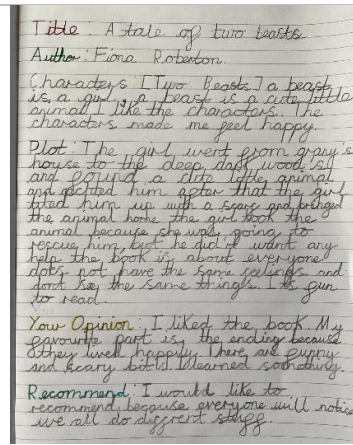 Title: A tale of two beasts
Author: Fiona Roberton.
Characters [Two Beasts] a beast
is a girl, a beast is a cute little
animal I like the characters. The
characters made me feel happy.
Plot: The girl went from grany's
house to the deep dark wood's
and found a cute little animal
and after that the girl
tited him up with a scarf and bringed
the animal home the girl took the
animal because she was going to
rescue him, but he did'nt want any
help the book is about everyone
dots not have the same feelings and
dont see the same things. Its fun
to read.
Your Opinion: I liked the book. My
favourite part is, the ending because
they lived happily. There are funny
and scary bits. I learned something.
Recommend: I would like to
recommend because everyone will notice
we all do different stuff.